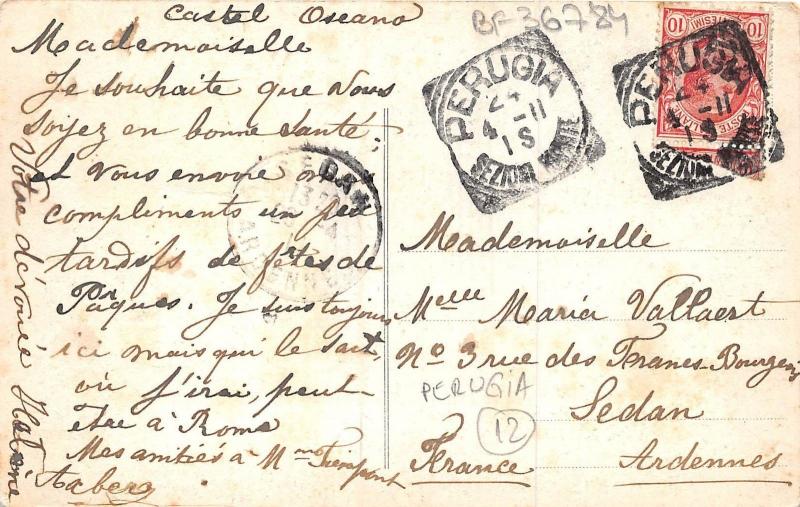 BF36784
Castel Oseano
Mademoiselle
Je souhaite que Nous
soijez en bonne santé,
et vous envoie
compliments un peu
tardifs de fêtes de
Pâques. Je suis toujours
ici mais qui le sait,
où j'irai, peut
être à Rome
Mes amitiés à Mme
Votre dévouée
PERUGIA
24
4 -11
18
SEZIONE
PERUGIA
24
4 -11
18
10
CENTESIMI
10
POSTE ITALIANE
SEDAN
ARDENNES
Mademoiselle
Melle Maria Vallaert
No 3 rue des Franes-Bourgeois
PERUGIA
12
Sedan
France Ardennes